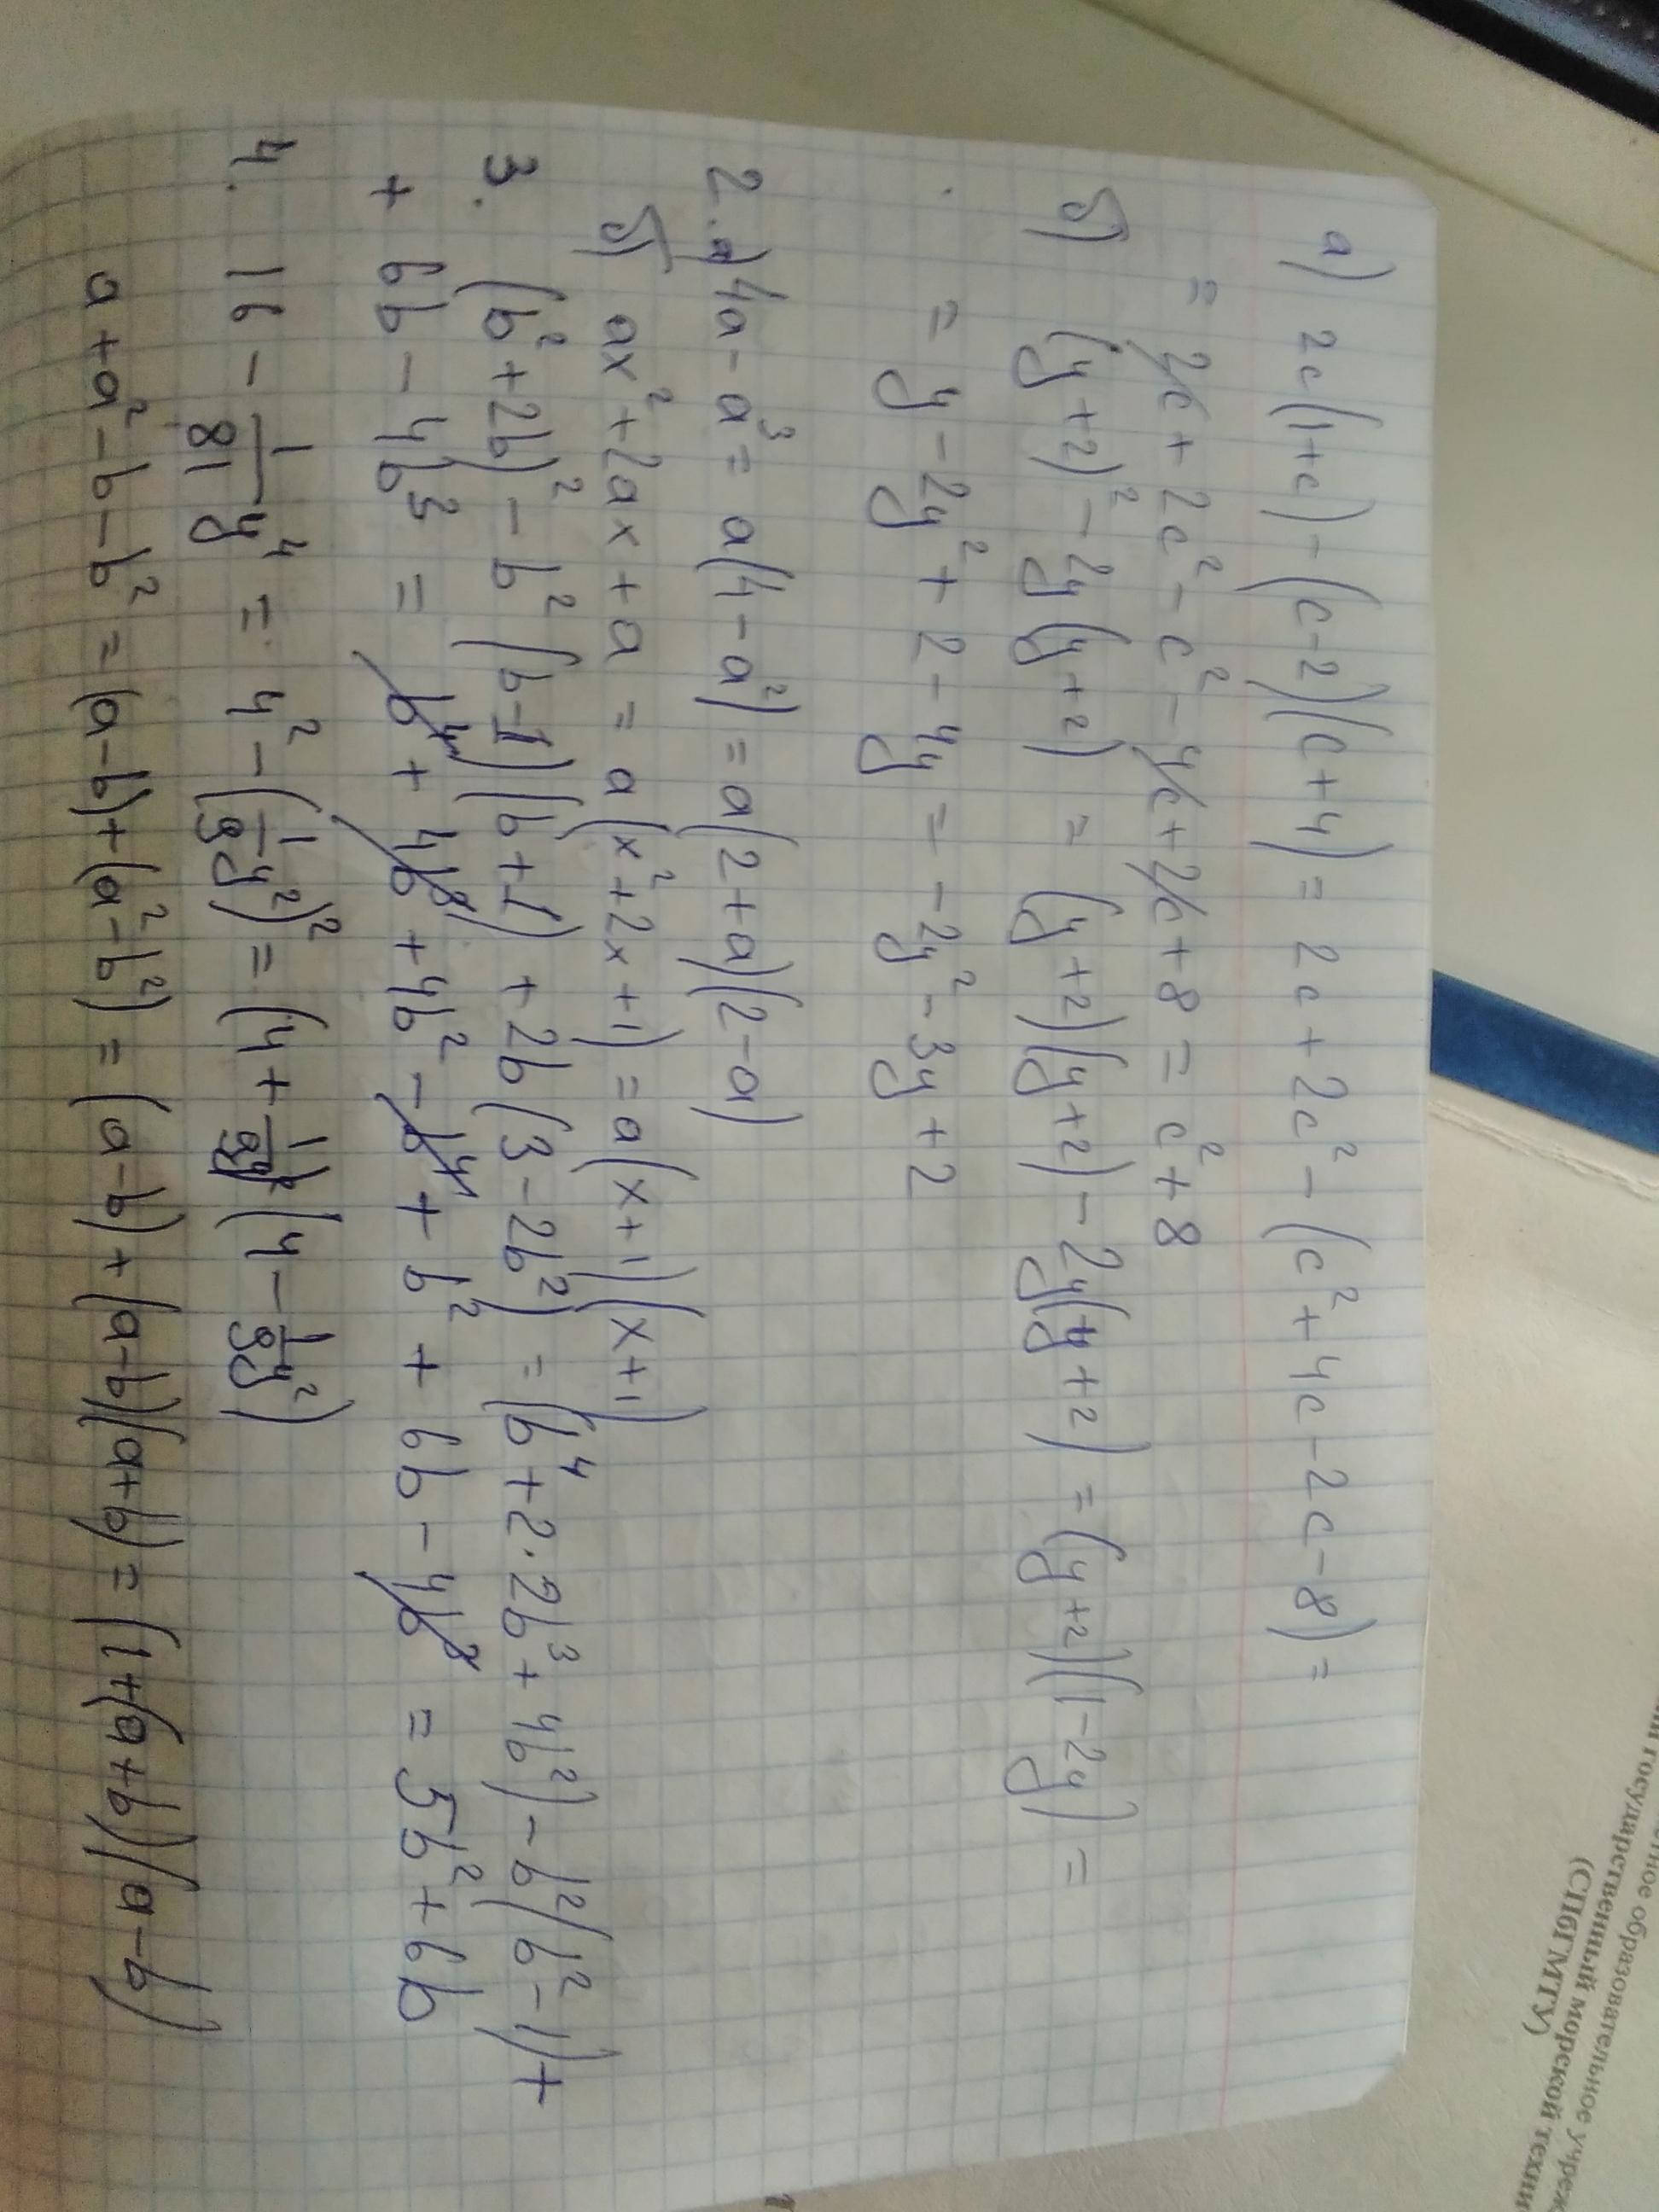 а) 2c(1+c) - (c-2)(c+4) = 2c + 2c² - (c² + 4c - 2c - 8) =
= 2c + 2c² - c² - 4c + 2c + 8 = c² + 8
б) (y+2)² - 2y(y+2) = (y+2)(y+2) - 2y(y+2) = (y+2)(1-2y) =
= y - 2y² + 2 - 4y = -2y² - 3y + 2
2. а) 4a - a³ = a(4 - a²) = a(2+a)(2-a)
б) ax² + 2ax + a = a(x² + 2x + 1) = a(x+1)(x+1)
3. (b² + 2b)² - b²(b-1)(b+1) + 2b(3 - 2b²) = (b⁴ + 2·2b³ + 4b²) - b²(b² - 1) +
+ 6b - 4b³ = b⁴ + 4b³ + 4b² - b⁴ + b² + 6b - 4b³ = 5b² + 6b
4. 16 - 1/81 y⁴ = 4² - (1/9 y²)² = (4 + 1/9 y²)(4 - 1/9 y²)
a + a² - b - b² = (a-b) + (a² - b²) = (a-b) + (a-b)(a+b) = (1+(a+b))(a-b)
государственный морской техни
образовательное учреж
(СПбГМТУ)